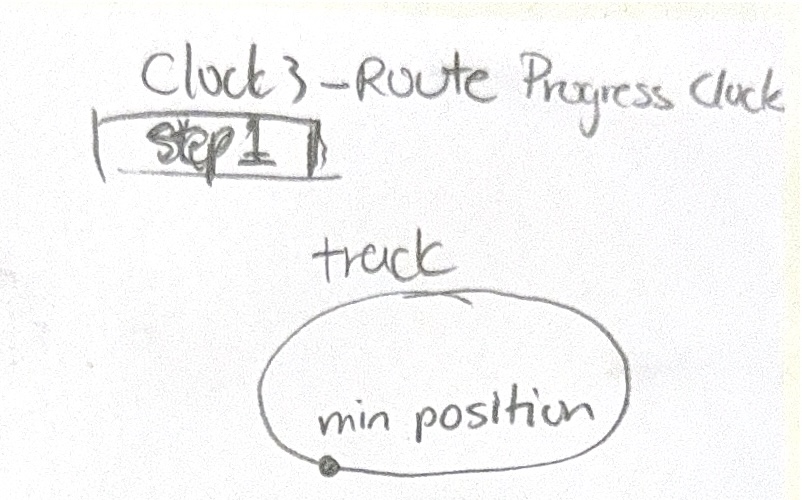 Clock 3 - Route Progress Clock
Step 1
track
min position